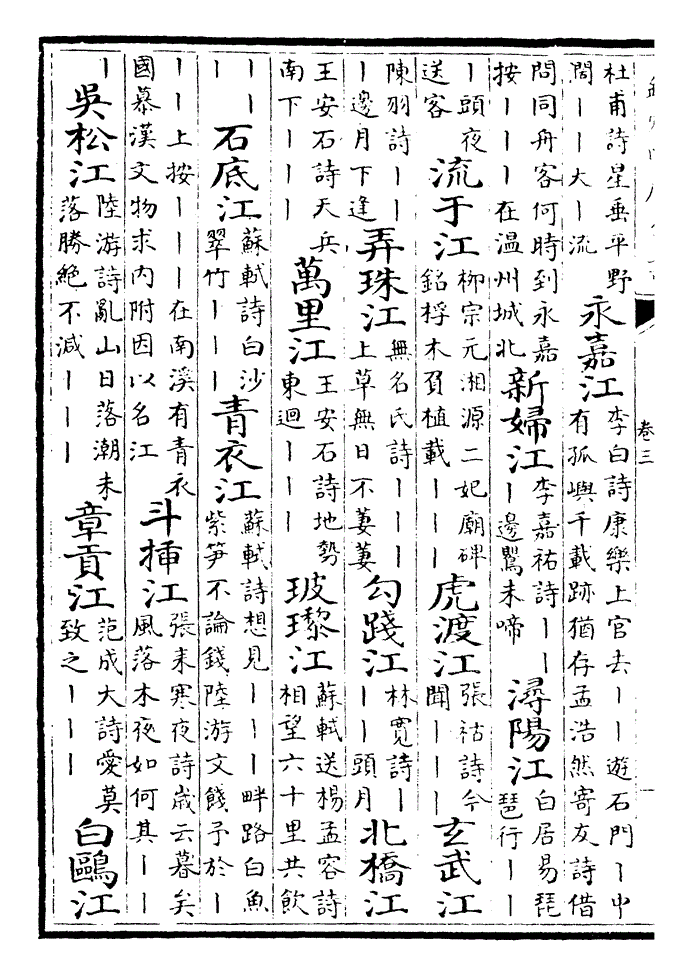 卷三
杜甫詩星垂平野
闊丨丨大丨流
永嘉江
李白詩康樂上官去丨丨遊石門丨中
有孤嶼千載跡猶存孟浩然寄友詩借
問同舟客何時到永嘉
按丨丨丨在温州城北
新婦江
李嘉祐詩丨丨
丨邊鸎未啼
潯陽江
白居易琵
琶行丨丨
丨頭夜
送客
流于江
柳宗元湘源二妃廟碑
銘桴木負植載丨丨丨
虎渡江
張祜詩今
聞丨丨丨
玄武江
陳羽詩丨丨
丨邊月下逢
弄珠江
無名氏詩丨丨丨
上草無日不萋萋
勾踐江
林寛詩丨
丨丨頭月
北橋江
王安石詩天兵
南下丨丨丨
萬里江
王安石詩地勢
東迴丨丨丨
玻瓈江
蘇軾送楊孟容詩
相望六十里共飲
丨丨
丨
石底江
蘇軾詩白沙
翠竹丨丨丨
青衣江
蘇軾詩想見丨丨丨畔路白魚
紫笋不論錢陸游文餞予於丨
丨丨上按丨丨丨在南溪有青衣
國慕漢文物求内附因以名江
斗揷江
張耒寒夜詩嵗云暮矣
風落木夜如何其丨丨
丨
吳松江
陸游詩亂山日落潮未
落勝絶不減丨丨丨
章貢江
范成大詩愛莫
致之丨丨丨
白鷗江